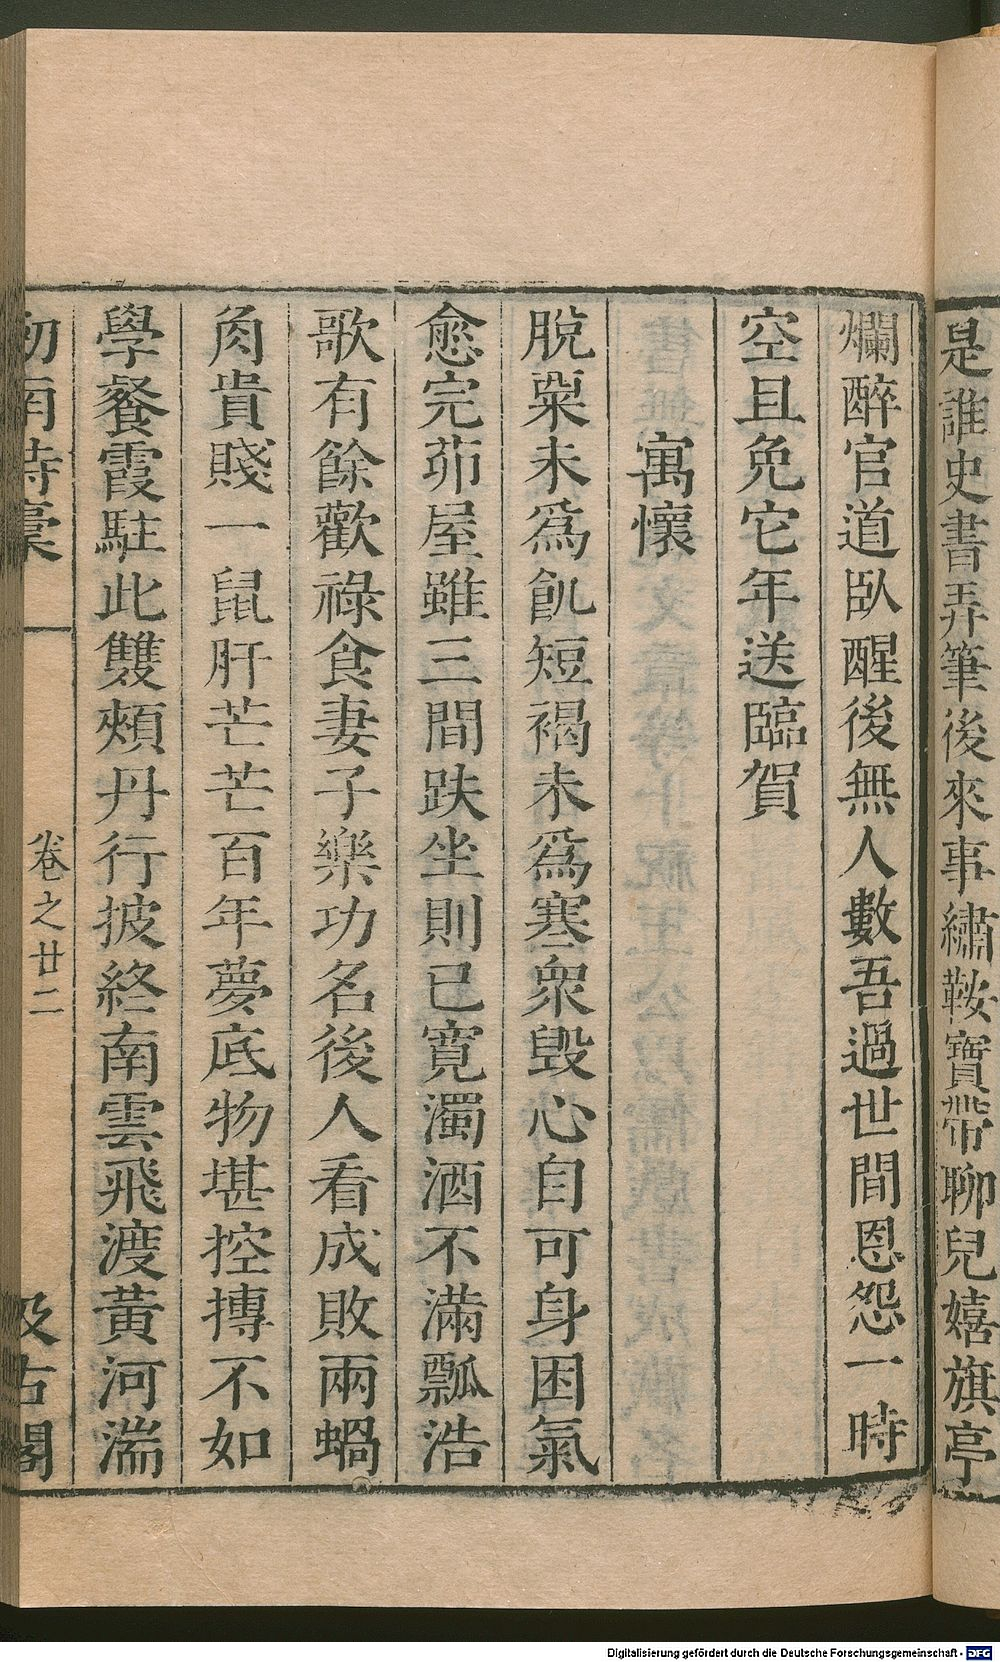 是誰史書弄筆後來事繡鞍寶帶聊兒嬉旗亭
爛醉官道臥醒後無人數吾過世間恩怨一時
空且免它年送臨賀
寓懷
脫粟未爲飢短褐未爲寒衆毀心自可身困氣
愈完茆屋雖三間趺坐則已寬濁酒不滿瓢浩
歌有餘歡祿食妻子樂功名後人看成敗兩蝸
角貴賤一鼠肝芒芒百年夢底物堪控摶不如
學餐霞駐此雙頰丹行披終南雲飛渡黃河湍
劒南詩稾
卷之廿二
汲古閣
Digitalisierung gefördert durch die Deutsche Forschungsgemeinschaft - DFG